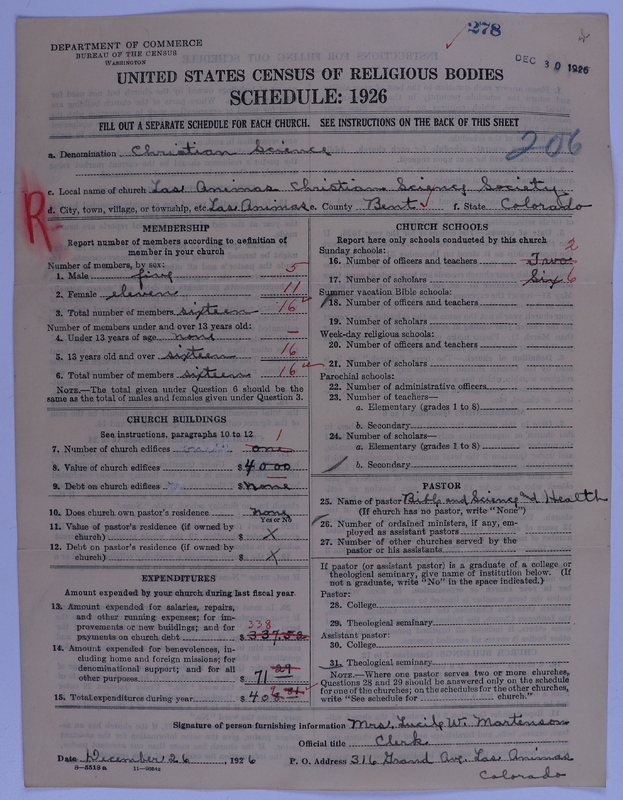 278
DEC 30 1926
DEPARTMENT OF COMMERCE
BUREAU OF THE CENSUS
WASHINGTON
UNITED STATES CENSUS OF RELIGIOUS BODIES
SCHEDULE: 1926
FILL OUT A SEPARATE SCHEDULE FOR EACH CHURCH. SEE INSTRUCTIONS ON THE BACK OF THIS SHEET
206
a. Denomination Christian Science
c. Local name of church Las Animas Christian Science Society
R
d. City, town, village, or township, etc. Las Animas e. County Bent f. State Colorado
MEMBERSHIP
Report number of members according to definition of
member in your church
Number of members, by sex:
1. Male five 5
2. Female eleven 11
3. Total number of members sixteen 16
Number of members under and over 13 years old:
4. Under 13 years of age none —
5. 13 years old and over sixteen 16
6. Total number of members sixteen 16
NOTE.—The total given under Question 6 should be the
same as the total of males and females given under Question 3.
CHURCH BUILDINGS
See instructions, paragraphs 10 to 12
1
7. Number of church edifices one
8. Value of church edifices $ 4000
9. Debt on church edifices $ None
10. Does church own pastor's residence none
Yes or No
11. Value of pastor's residence (if owned by
church) $ X
12. Debt on pastor's residence (if owned by
church) $ X
EXPENDITURES
Amount expended by your church during last fiscal year
13. Amount expended for salaries, repairs,
and other running expenses; for im-
provements or new buildings; and for 338
payments on church debt $ 337.52
14. Amount expended for benevolences, in-
cluding home and foreign missions; for
denominational support; and for all
other purposes $ 71 29
15. Total expenditures during year $ 408 81
CHURCH SCHOOLS
Report here only schools conducted by this church
Sunday schools: 2
16. Number of officers and teachers Two
17. Number of scholars Six 6
Summer vacation Bible schools:
18. Number of officers and teachers
19. Number of scholars
Week-day religious schools:
20. Number of officers and teachers
21. Number of scholars
Parochial schools:
22. Number of administrative officers
23. Number of teachers—
a. Elementary (grades 1 to 8)
b. Secondary
24. Number of scholars—
a. Elementary (grades 1 to 8)
b. Secondary
PASTOR
25. Name of pastor Bible and Science and Health
(If church has no pastor, write "None")
26. Number of ordained ministers, if any, em-
ployed as assistant pastors
27. Number of other churches served by the
pastor or his assistants
If pastor (or assistant pastor) is a graduate of a college or
theological seminary, give name of institution below. (If
not a graduate, write "No" in the space indicated.)
Pastor:
28. College
29. Theological seminary
Assistant pastor:
30. College
31. Theological seminary
NOTE.—Where one pastor serves two or more churches,
Questions 28 and 29 should be answered only on the schedule
for one of the churches; on the schedules for the other churches,
write "See schedule for church."
Signature of person furnishing information Mrs. Lucile W. Martenson
Official title Clerk
Date December 26, 1926 P. O. Address 316 Grand Ave. Las Animas
Colorado
8—3518a 11—9684